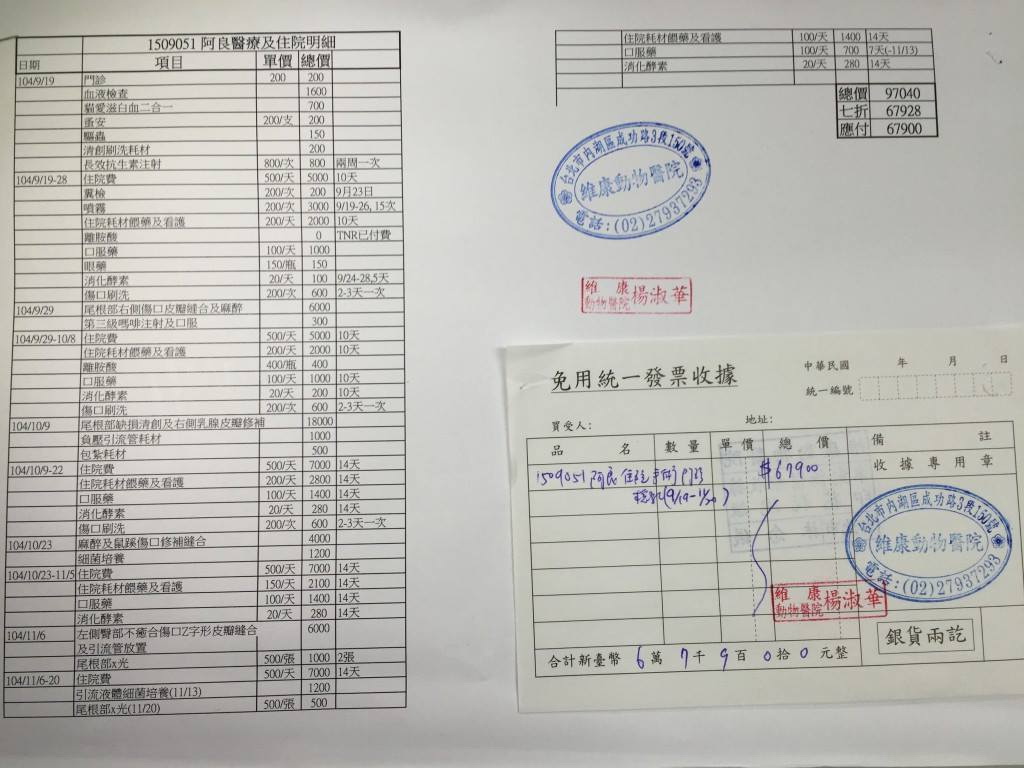 1509051 阿良醫療及住院明細
日期 項目 單價 總價
104/9/19 門診 200 200
血液檢查 1600
貓愛滋白血二合一 700
蚤安 200/支 200
驅蟲 150
清創刷洗耗材 200
長效抗生素注射 800/次 800 兩周一次
104/9/19-28 住院費 500/天 5000 10天
糞檢 200/次 200 9月23日
噴霧 200/次 3000 9/19-26, 15次
住院耗材餵藥及看護 200/天 2000 10天
離胺酸 0 TNR已付費
口服藥 100/天 1000
眼藥 150/瓶 150
消化酵素 20/天 100 9/24-28,5天
傷口刷洗 200/次 600 2-3天一次
104/9/29 尾根部右側傷口皮瓣縫合及麻醉 6000
第三級嗎啡注射及口服 300
104/9/29-10/8 住院費 500/天 5000 10天
住院耗材餵藥及看護 200/天 2000 10天
離胺酸 400/瓶 400
口服藥 100/天 1000 10天
消化酵素 20/天 200 10天
傷口刷洗 200/次 600 2-3天一次
104/10/9 尾根部缺損清創及右側乳腺皮瓣修補 18000
負壓引流管耗材 1000
包紮耗材 500
104/10/9-22 住院費 500/天 7000 14天
住院耗材餵藥及看護 200/天 2800 14天
口服藥 100/天 1400 14天
消化酵素 20/天 280 14天
傷口刷洗 200/次 600 2-3天一次
104/10/23 麻醉及鼠蹊傷口修補縫合 4000
細菌培養 1200
104/10/23-11/5 住院費 500/天 7000 14天
住院耗材餵藥及看護 150/天 2100 14天
口服藥 100/天 1400 14天
消化酵素 20/天 280 14天
104/11/6 左側臀部不癒合傷口Z字形皮瓣縫合 6000
及引流管放置
尾根部x光 500/張 1000 2張
104/11/6-20 住院費 500/天 7000 14天
引流液體細菌培養(11/13) 1200
尾根部x光(11/20) 500/張 500
住院耗材餵藥及看護 100/天 1400 14天
口服藥 100/天 700 7天(-11/13)
消化酵素 20/天 280 14天
總價 97040
七折 67928
應付 67900
台北市內湖區成功路3段150號
維康動物醫院
電話:(02)27937293
維康
動物醫院 楊淑華
免用統一發票收據
中華民國 年 月 日
統一編號
買受人: 地址:
品名 數量 單價 總價 備註
1509051 阿良 住院 $67900 收據專用章
(9/19-11/20)
台北市內湖區成功路3段150號
維康動物醫院
電話:(02)27937293
維康
動物醫院 楊淑華
銀貨兩訖
合計新臺幣 6 萬 7 千 9 百 0 拾 0 元整